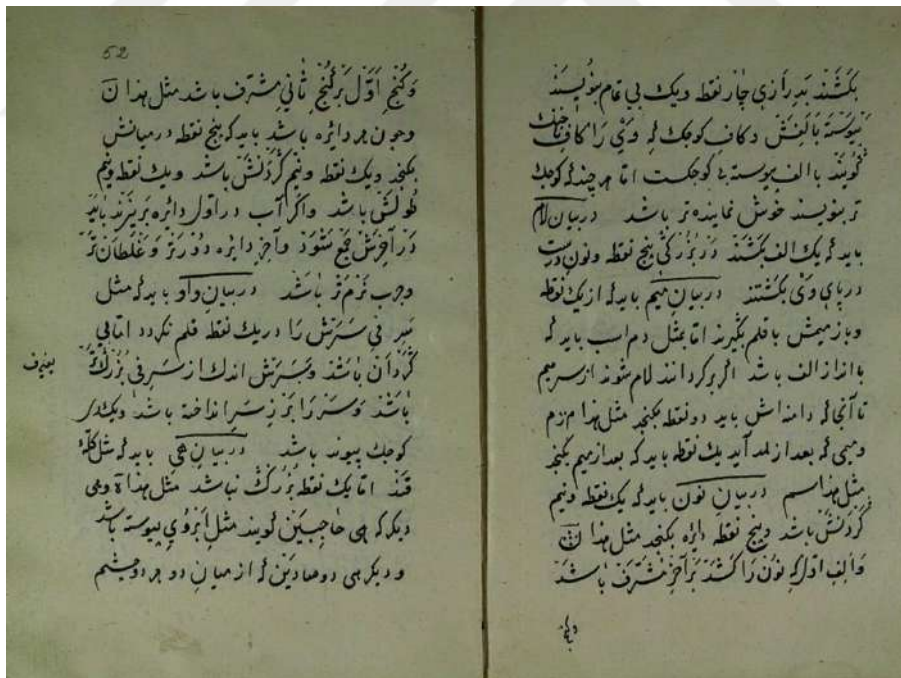 بکشند بدرازی چار نقطه ویک بی قام بنویسند
پیوسته بالفش دکاف کوجک که ویی را کاف
گویند با الف پیوسته کوجکست اما هر چند که کوجک
تر بنویسند خوش نماینده تر باشد در بیان لام
باید که یک الف بکشند در بزرکی پنج نقطه ونون درست
در پای وی بکشتند در بیان میم باید که از یک نقطه
وباز میمش با قلم بگیرند اما مثل دم اسب باید که
با انداز الف باشد اگر بر کردانند لام شود از سر میم
تا آنجا که دامنه اش باید دو نقطه بکنجد مثل هذا م
ومیمی که بعد از آید یک نقطه باید که بعد از میم بکنجد
مثل هذا سم در بیان نون باید که یک نقطه ونیم
کردنش باشد وپنج نقطه دایره بکنجد مثل هذا ن
والف اول که نون را کشند بر آخر مشرف باشد
52
وکنج اول بر کنج ثانی مشرف باشد مثل هذا ن
وجون هر دایره باشد باید که پنج نقطه در میانش
بکنجد ویک نقطه ونیم کردنش باشد ویک نقطه ونیم
طولش باشد واکر آب در اول دایره بریزند باید
در آخرش جمع شود وآخر دایره دورتر وغلطان تر
وجرب نرم تر باشد در بیان واو باید که مثل
سر فی سرش را در یک نقطه قلم نکردد اما فی
کردان باشد وسرش اندک از سر فی بزرکتر
باشد وسر را بزیر سر انداخته باشد ویک
کوجک پیوند باشد در بیان هی باید که مثل کله
قند اما یک نقطه بزرکش نباشد مثل هذا ه وهی
دیکر که هی حاجبین گویند مثل ابروی پیوسته باشد
ودیکر هی دو صادین که از میان دو هر دو جشم